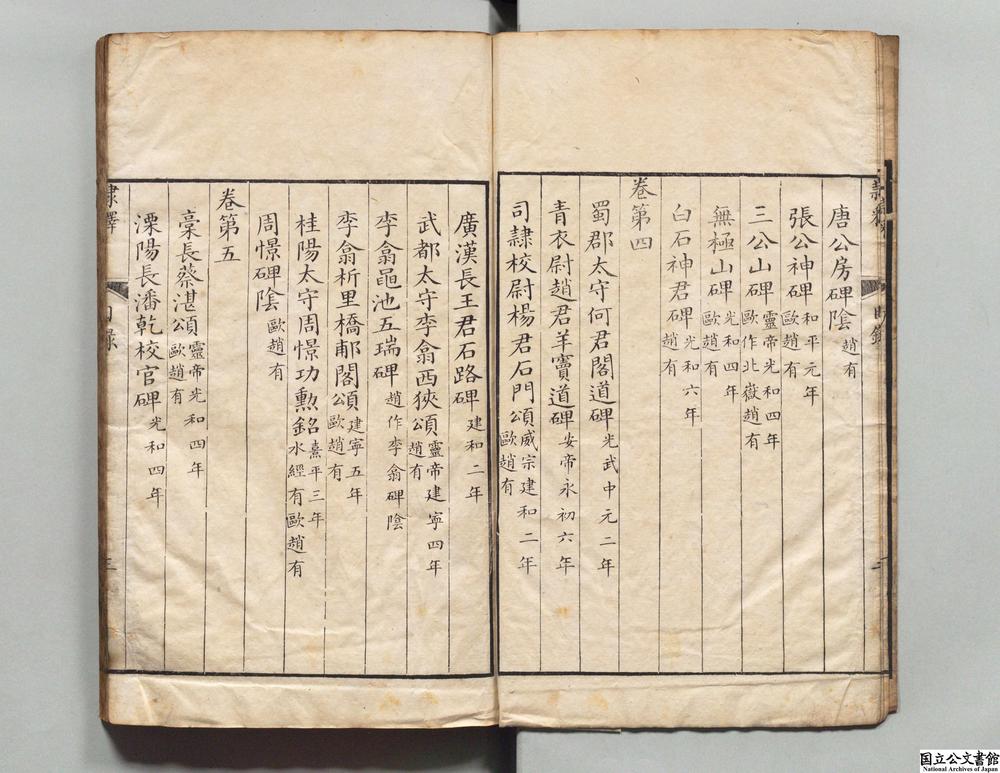 唐公房碑陰趙有
張公神碑和平元年歐趙有
三公山碑靈帝光和四年歐作北嶽趙有
無極山碑光和四年歐趙有
白石神君碑光和六年趙有
卷第四
蜀郡太守何君閣道碑光武中元二年
青衣尉趙君羊竇道碑安帝永初六年
司隸校尉楊君石門頌威宗建和二年歐趙有
廣漢長王君石路碑建和二年
武都太守李翕西狹頌靈帝建寧四年趙有
李翕黽池五瑞碑趙作李翕碑陰
李翕析里橋郙閣頌建寧五年歐趙有
桂陽太守周憬功勲銘熹平三年水經有歐趙有
周憬碑陰歐趙有
卷第五
稾長蔡湛頌靈帝光和四年歐趙有
溧陽長潘乾校官碑光和四年
隸釋 目錄 三
国立公文書館
National Archives of Japan